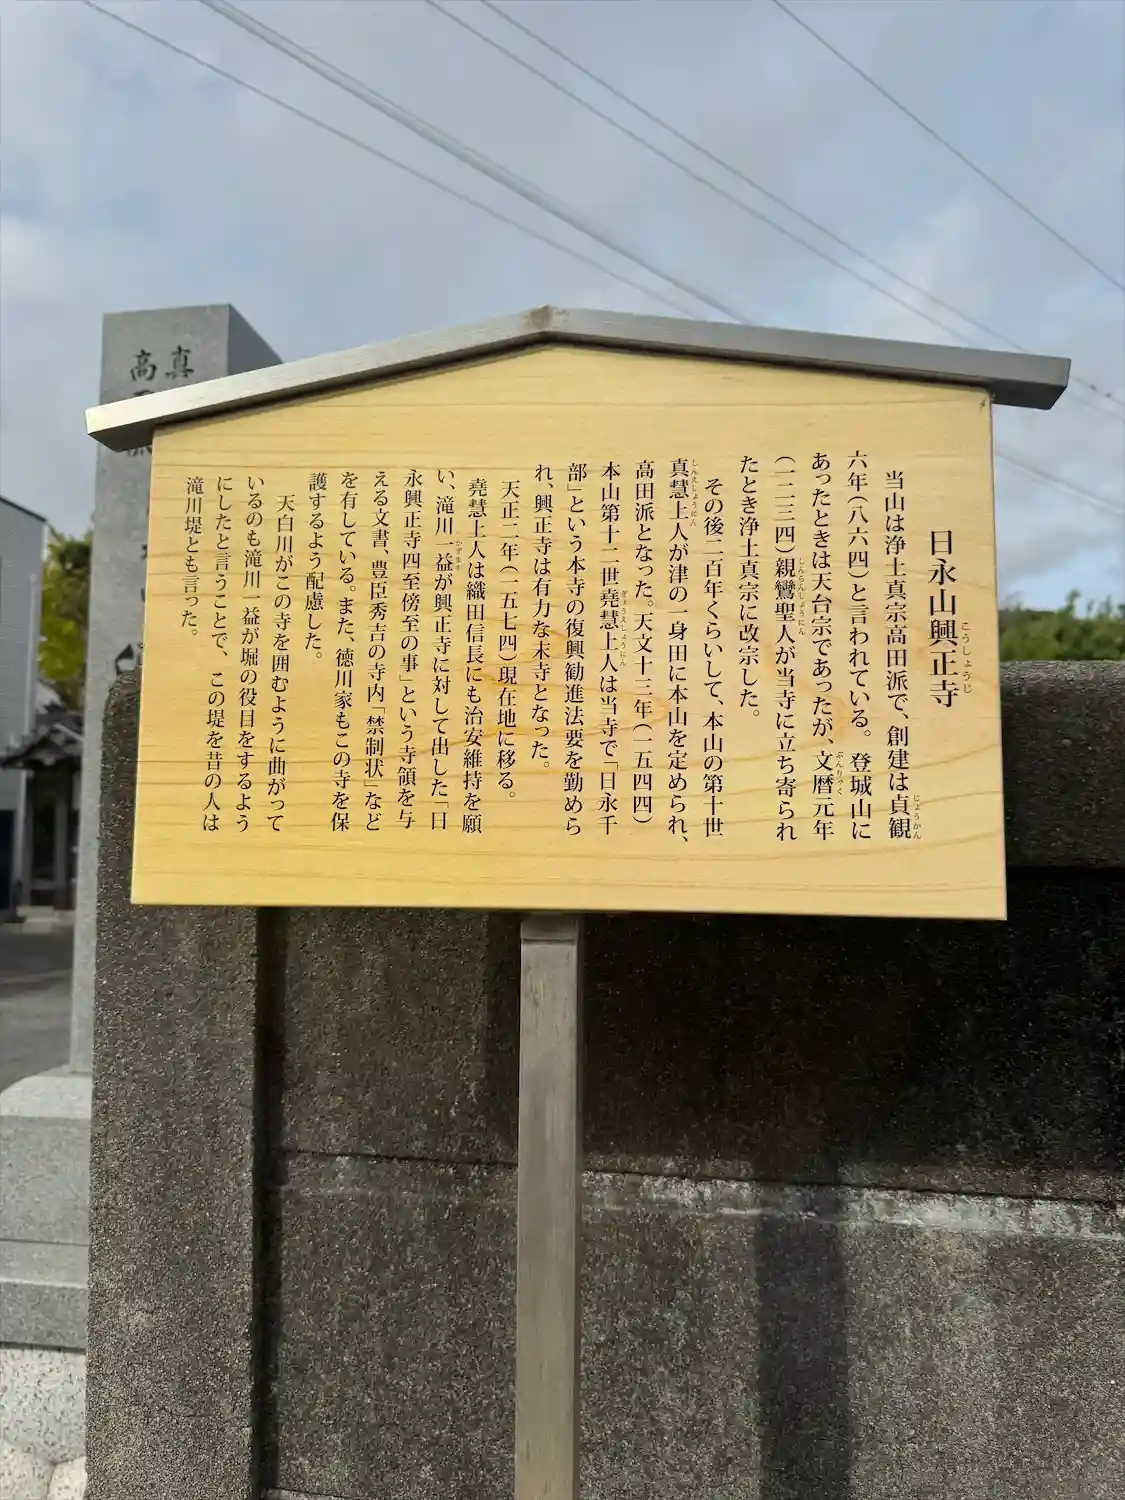 日永山興正寺
こうしょうじ
当山は浄土真宗高田派で、創建は貞観
じょうかん
六年(八六四)と言われている。登城山に
あったときは天台宗であったが、文暦元年
ぶんりゃく
(一二三四)親鸞聖人が当寺に立ち寄られ
しんらんしょうにん
たとき浄土真宗に改宗した。
その後二百年くらいして、本山の第十世
真慧上人が津の一身田に本山を定められ、
しんえしょうにん
高田派となった。天文十三年(一五四四)
本山第十二世堯慧上人は当寺で「日永千
ぎょうえしょうにん
部」という本寺の復興勧進法要を勤めら
れ、興正寺は有力な末寺となった。
天正二年(一五七四)現在地に移る。
堯慧上人は織田信長にも治安維持を願
い、滝川一益が興正寺に対して出した「日
かずます
永興正寺四至傍至の事」という寺領を与
える文書、豊臣秀吉の寺内「禁制状」など
を有している。また、徳川家もこの寺を保
護するよう配慮した。
天白川がこの寺を囲むように曲がって
いるのも滝川一益が堀の役目をするよう
にしたと言うことで、この堤を昔の人は
滝川堤とも言った。
真
高